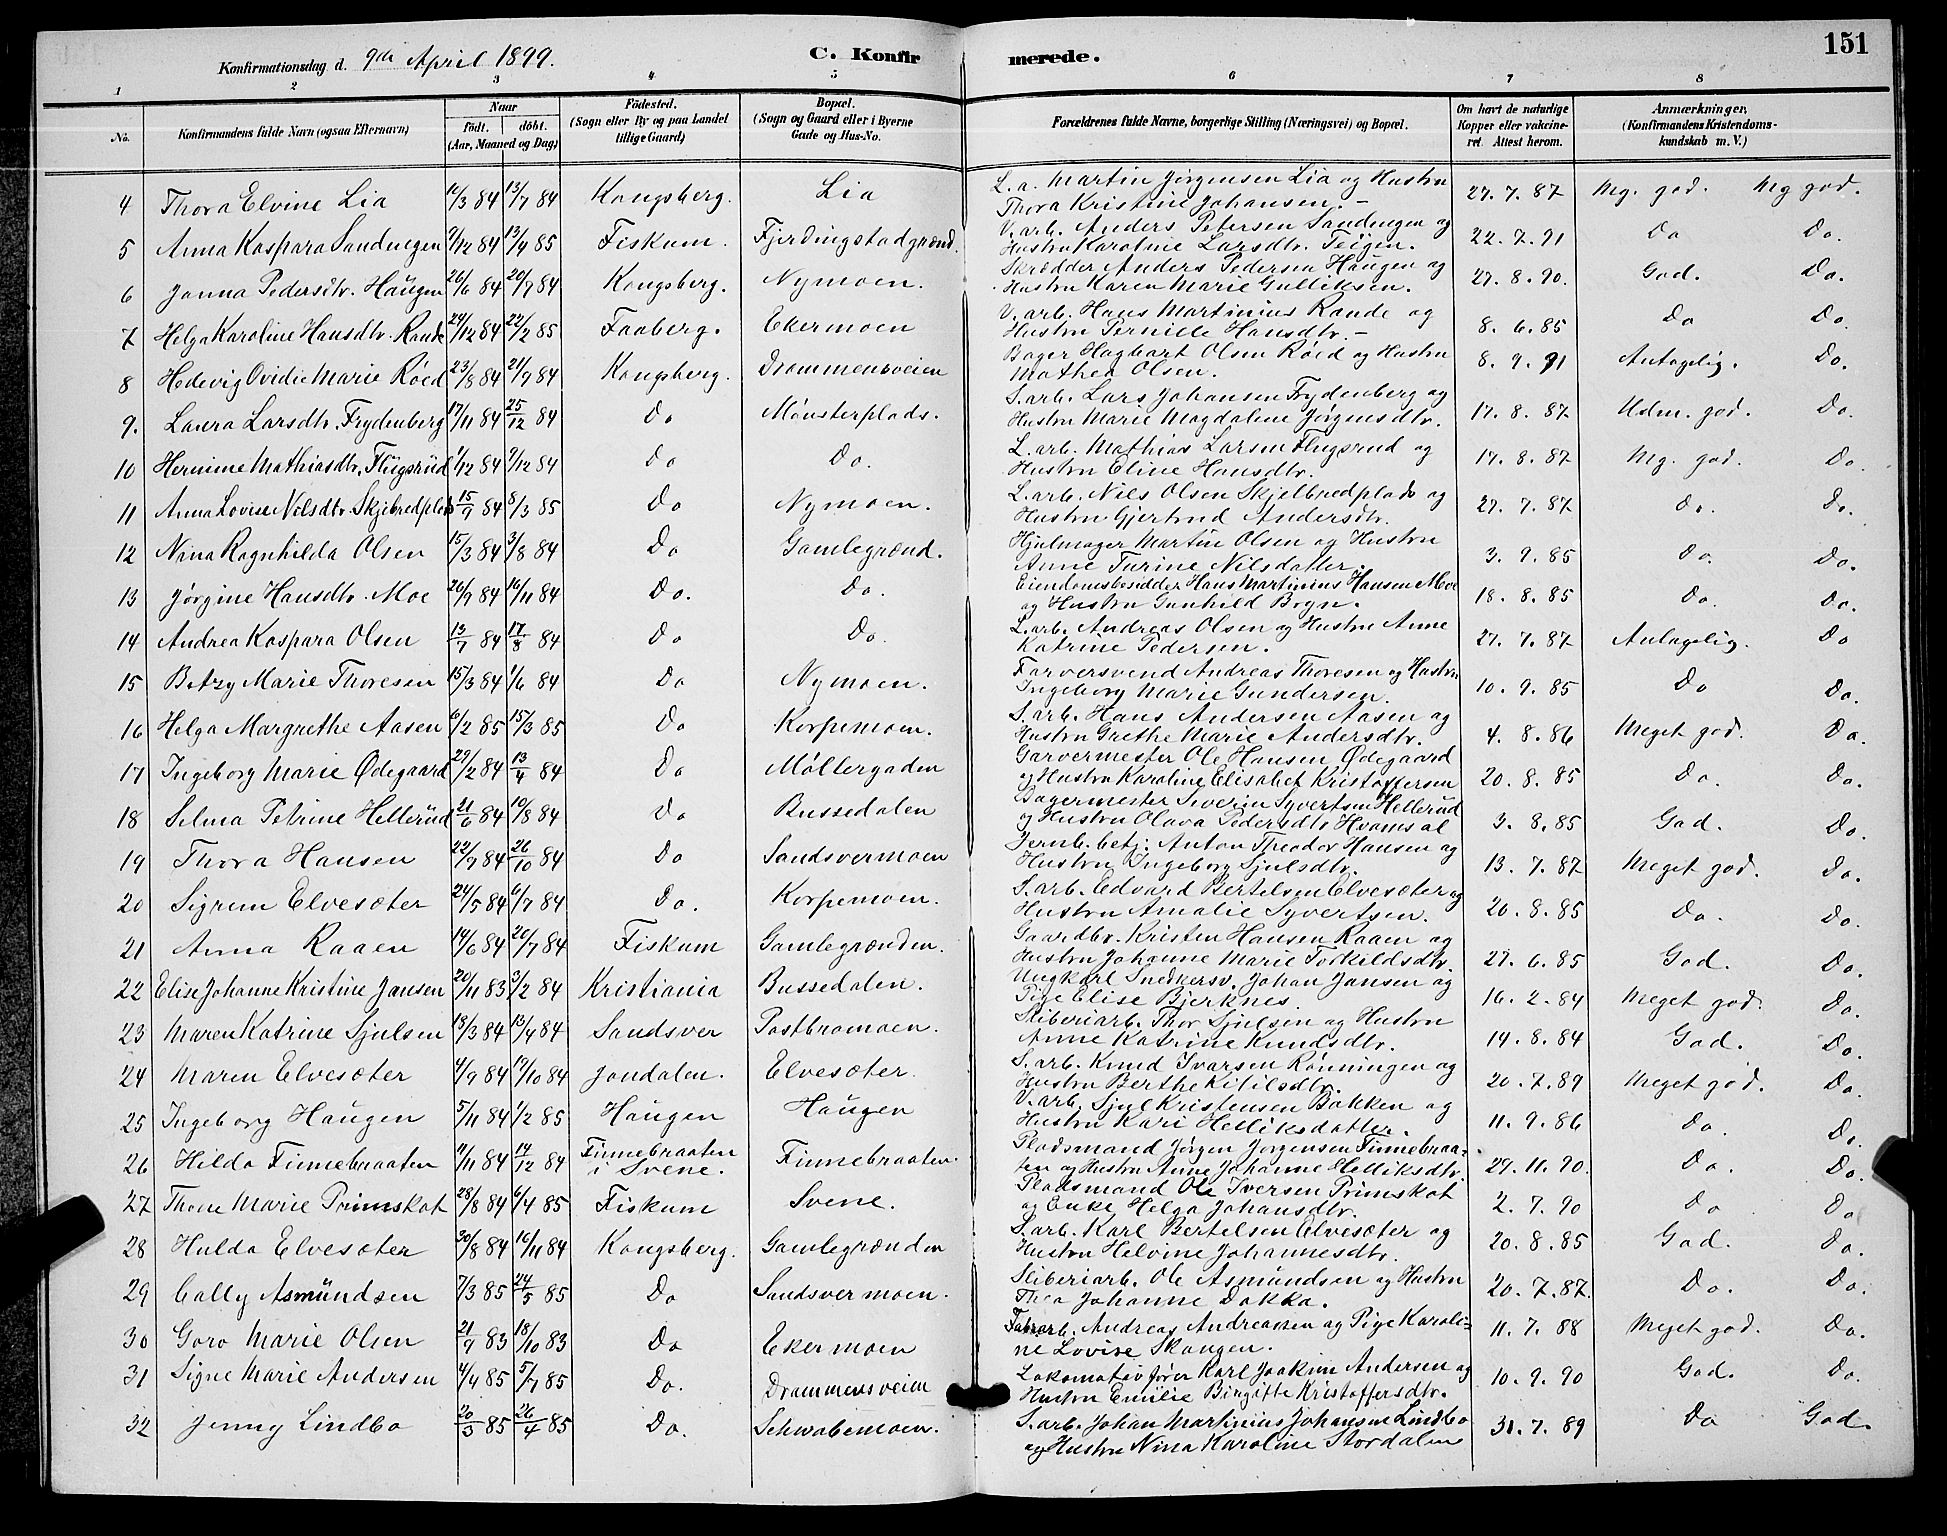 151
Konfirmationsdag d. 9de April 1899. C. Konfirmerede.
1 2 3 4 5 6 7 8
No. Konfirmandens fulde Navn (ogsaa Efternavn) Naar født. døbt. (Aar, Maaned og Dag) Fødested. (Sogn eller By og paa Landet tillige Gaard) Bopæl. (Sogn og Gaard eller i Byerne Gade og Hus-No. Forældrenes fulde Navne, borgerlige Stilling (Næringsvei) og Bopæl. Om havt de naturlige Kopper eller vakcineret. Attest herom. Anmærkninger. (Konfirmandens Kristendomskundskab m. V.)
4 Thora Elvine Lia 10/3 84 13/7 84 Kongsberg. Lia L. a. Martin Jørgensen Lia og Hustru
Thora Kristine Johansen. 27. 7. 87 Mg. god. Mg god.
5 Anna Kaspara Sandengen 9/12 84 13/4 85 Fiskum. Fjerdingstadgrænd. V. arb. Anders Petersen Sandengen og
Hustru Karoline Larsdtr. Teigen. 22. 7. 91 Do Do.
6 Janna Pedersdtr. Haugen 26/6 84 20/7 84 Kongsberg. Nymoen. Skrædder Anders Pedersen Haugen og
Hustru Karen Marie Gulliksen. 27. 8. 90. God. Do.
7 Helga Karoline Hansdtr. Rande 29/12 84 22/2 85 Faaberg. Ekermoen V. arb. Hans Martinius Rande og
Hustru Pernille Hansdtr. 8. 6. 85 Do Do.
8 Hedevig Ovidie Marie Röed 23/8 84 21/9 84 Kongsberg. Drammensveien Bager Hagbart Olsen Röed og Hustru
Mathea Olsen. 8. 9. 91 Antagelig. Do.
9. Laura Larsdtr. Frydenberg 17/11 84 25/12 84 Do Mønsterplads. S. arb. Lars Johansen Frydenberg og
Hustru Marie Magdalene Jørgensdtr. 17. 8. 87 Udm. god. Do.
10 Hernine Mathiasdtr. Flügsrüd 1/12 84 9/12 84 Do Do. L. arb. Mathias Larsen Flugsrud og
Hustru Eline Hansdtr. 17. 8. 87 Mg. god. Do.
11 Anna Lovise Nilsdtr. Skjebredplads 15/9 84 8/3 85 Do Nymoen. L. arb. Nils Olsen Skjelbredplads og
Hustru Gjertrud Andersdtr. 27. 7. 87 Do. Do.
12 Nina Ragnhilda Olsen 15/3 84 3/8 84 Do Gamlegrænd. Hjulmager Martin Olsen og Hustru
Anne Turine Nilsdatter. 3. 9. 85 Do. Do.
13 Jørgine Hansdtr. Moe 26/9 84 16/11 84 Do. Do. Eiendomsbesidder Hans Martinius Hansen Moe
og Hustru Gunhild Bryn. 18. 8. 85 Do. Do.
14 Andrea Kaspara Olsen 13/7 84 17/8 84 Do Do. L. arb. Andreas Olsen og Hustru Anne
Katrine Pedersen. 27. 7. 87 Antagelig. Do
15 Betzy Marie Thoresen 15/3 84 1/6 84 Do Nymoen. Farversvend Andreas Thoresen og Hustru
Ingeborg Marie Gundersen. 10. 9. 85 Do Do.
16 Helga Margrethe Aasen 6/2 85 15/3 85 Do Korpemoen. S. arb. Hans Andersen Aasen og
Hustru Grethe Marie Andersdtr. 4. 8. 86 Meget god. Do.
17 Ingeborg Marie Ødegaard 29/2 84 13/4 84 Do Møllergaden Garvermester Ole Hansen Ødegaard
og Hustru Karoline Elisabet Kristoffersen 20. 8. 85 Do. Do.
18 Selma Petrine Hellerüd 21/6 84 10/8 84 Do Bussedalen Bagermester Severin Syvertsen Hellerud
og Hustru Olava Pedersdtr Hvamsal 3. 8. 85 God. Do.
19 Thora Hansen 22/9 84 26/10 84 Do Sandsvermoen Jernb. betj. Anton Theodor Hansen og
Hustru Ingeborg Sjulsdtr. 13. 7. 87 Meget god. Do.
20 Sigrun Elvesæter 24/5 84 6/7 84 Do. Korpemoen. S. arb. Edvard Bertelsen Elvesæter og
Hustru Amalie Syvertsen. 26. 8. 85 Do. Do.
21 Anna Raaen 14/6 84 20/7 84 Fiskum Gamlegrænden. Gaardbr. Kristen Hansen Raaen og
Hustru Johanne Marie Torkildsdtr. 27. 6. 85 God. Do.
22 Elise Johanne Kristine Jansen 20/11 83 3/2 84 Kristiania Bussedalen. Ungkarl Snedkersv. Johan Jansen og
Pige Elise Bjerknes. 16. 2. 84 Meget god. Do.
23 Maren Katrine Sjulsen 18/3 84 13/4 84 Sandsver Postbromoen. Sliberiarb. Thor Sjulsen og Hustru
Anne Katrine Knudsdtr. 14. 8. 84 God. Do.
24 Maren Elvesæter 4/9 84 19/10 84 Jondalen. Elvesæter. S. arb. Knud Ivarsen Rønningen og
Hustru Berthe Kitilsdtr. 20. 7. 89 Meget god. Do.
25 Ingeborg Haugen 5/11 84 1/2 85 Haugen Haugen V. arb. Sjul Kristensen Bakken og
Hustru Kari Helliksdatter. 11. 9. 86 Do. Do.
26 Hilda Finnebraaten 11/11 84 14/12 84 Finnebraaten i Svene. Finnebraaten. Pladsmand Jørgen Jørgensen Finnebraa-
ten og Hustru Anne Johanne Helliksdtr. 29. 11. 90. Do. Do.
27 Thone Marie Primskot 28/8 84 6/4 85 Fiskum Svene. Pladsmand Ole Iversen Primskot
og Enke Helga Johansdtr. 2. 7. 90 Do Do
28 Hulda Elvesæter 30/8 84 16/11 84 Kongsberg. Gamlegrænden S. arb. Karl Bertelsen Elvesæter og
Hustru Helvine Johannesdtr. 20. 8. 85 God. Do.
29 Cally Asmündsen 7/3 85 24/5 85 Do Sandsvermoen. Sliberiarb. Ole Asmündsen og Hustru
Thea Johanne Dokka. 20. 7. 87. Do. Do.
30 Goro Marie Olsen 21/9 83 18/10 83 Do Ekermoen Andreas Andreasen og Pige Karoli-
ne Lovise Skougen. 11. 7. 88 Meget god. Do.
31 Signe Marie Andersen 4/4 85 5/7 85 Do. Drammensveien Lokomotivfører Karl Joakim Andersen og
Hustru Emilie Birgitte Kristoffersdtr. 10. 9. 90 God. Do.
32 Jenny Lindbo 20/3 85 26/4 85 Do. Schwabemoen. S. arb. Johan Martinius Johansen Lindbo
og Hustru Nina Karoline Stordalen 31. 7. 89 Do God.